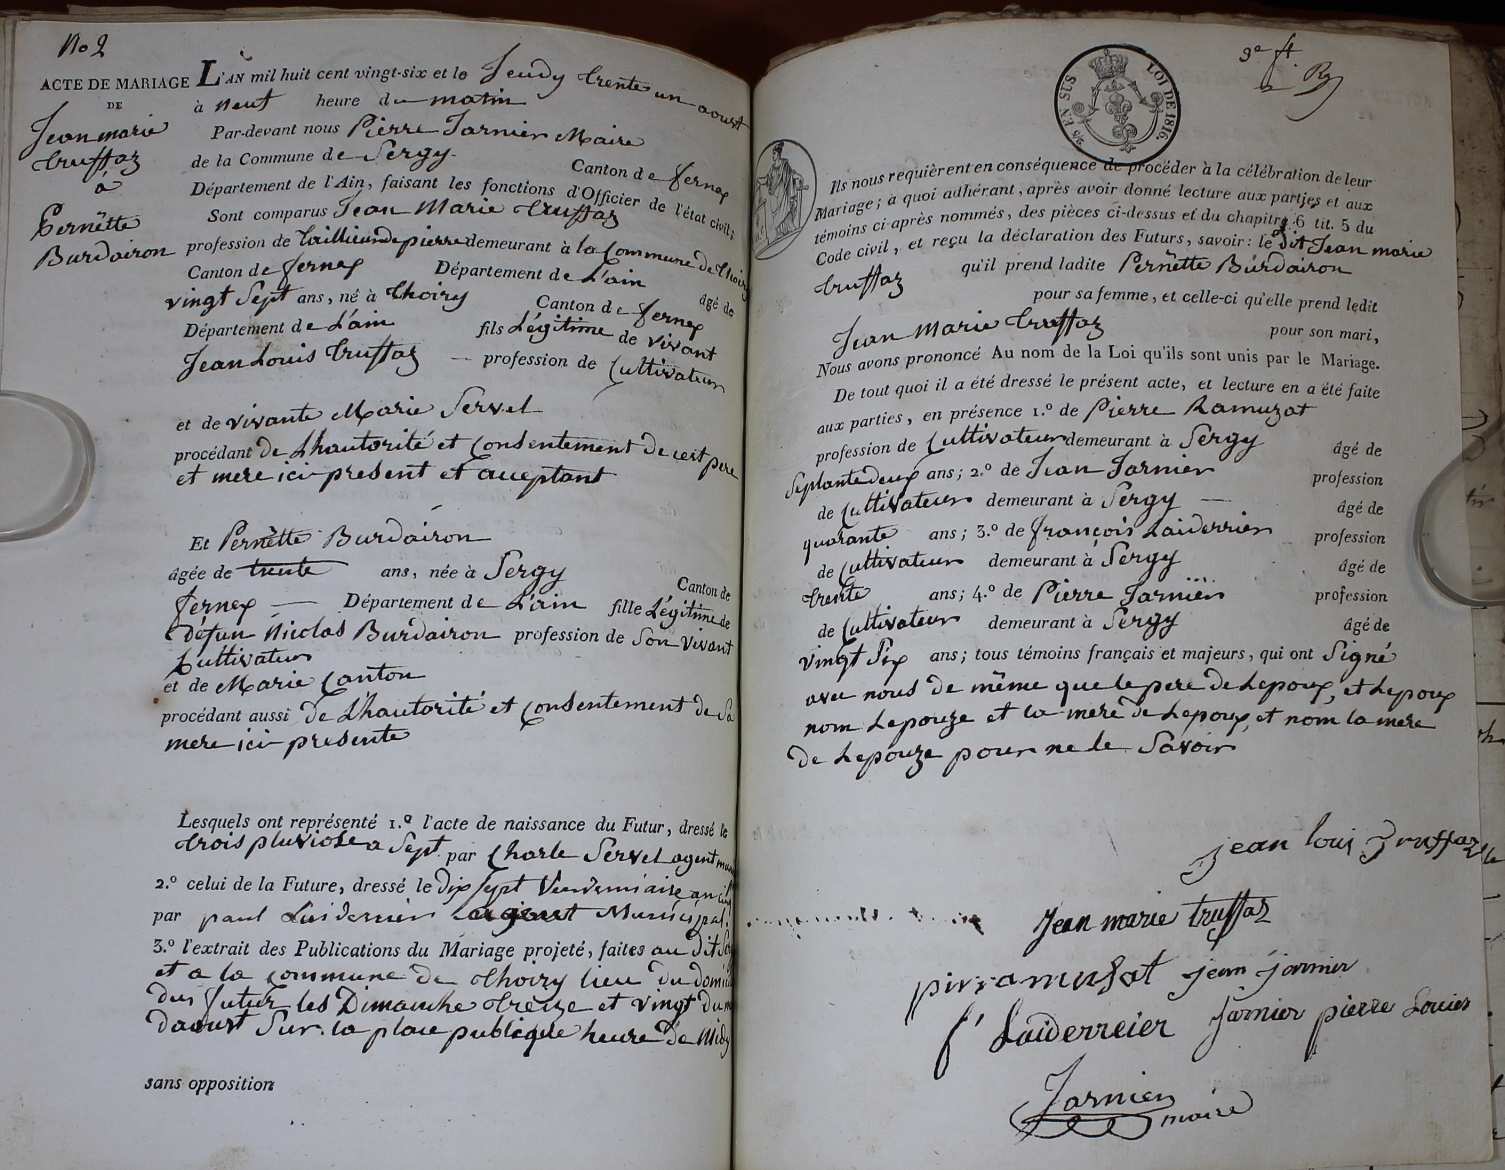 No 2
ACTE DE MARIAGE
DE
Jean marie
truffaz
à
Pernette
Burdairon
L'AN mil huit cent vingt-six et le Jeudy trente un aoust
à neuf heure du matin
Par-devant nous Pierre Jarnier Maire
de la Commune de Sergy. Canton de ferney
Département de l'Ain, faisant les fonctions d'Officier de l'état civil;
Sont comparus Jean Marie truffaz
profession de tailleur de pierre demeurant à la Commune de thoiry
Canton de ferney Département de L'ain âgé de
vingt Sept ans, né à thoiry Canton de ferney
Département de L'ain fils Légitime de vivant
Jean Louis truffaz — profession de Cultivateur
et de vivante Marie Servel
procédant de Lhautorité et Consentement de cest pere
et mere ici present et acceptant
Et Pernette Burdairon
âgée de trente ans, née à Sergy Canton de
ferney — Département de L'ain fille Légitime de
défun Nicolas Burdairon profession de Son vivant
Cultivateur
et de Marie Canton
procédant aussi de Lhautorité et Consentement de Sa
mere ici presente
Lesquels ont représenté 1.º l'acte de naissance du Futur, dressé le
trois pluviose a Sept par Charle Servel agent
2.º celui de la Future, dressé le dix Sept Vendemiaire an
par paul Laiderrier agent Municipal
3.º l'extrait des Publications du Mariage projeté, faites au dit
et a la Commune de thoiry lieu du
du futur les Dimanche treize et vingt du
daoust Sur la place publique heure de Midy
sans opposition
3e ft.
25 EN SUS LOI DE 1816.
Ils nous requièrent en conséquence de procéder à la célébration de leur
Mariage; à quoi adhérant, après avoir donné lecture aux parties et aux
témoins ci-après nommés, des pièces ci-dessus et du chapitre 6 tit. 5 du
Code civil, et reçu la déclaration des Futurs, savoir: le dit Jean marie
truffaz qu'il prend ladite Pernette Burdairon
pour sa femme, et celle-ci qu'elle prend ledit
Jean Marie truffaz pour son mari,
Nous avons prononcé Au nom de la Loi qu'ils sont unis par le Mariage.
De tout quoi il a été dressé le présent acte, et lecture en a été faite
aux parties, en présence 1.º de Pierre Ramuzat
profession de Cultivateur demeurant à Sergy âgé de
Septante deux ans; 2.º de Jean Jarnier profession
de Cultivateur demeurant à Sergy — âgé de
quarante ans; 3.º de françois Laiderrier profession
de Cultivateur demeurant à Sergy âgé de
trente ans; 4.º de Pierre Jarnier profession
de Cultivateur demeurant à Sergy âgé de
vingt Six ans; tous témoins français et majeurs, qui ont Signé
avec nous de même que le pere de Lepoux, et Lepoux
nom Lepouze et la mere de Lepoux, et nom la mere
de Lepouze pour ne le Savoir
jean loui truffaz
Jean marie truffaz
pirramusat jean jarnier
f' Laiderreier Jarnier pierre Louies
Jarnier maire